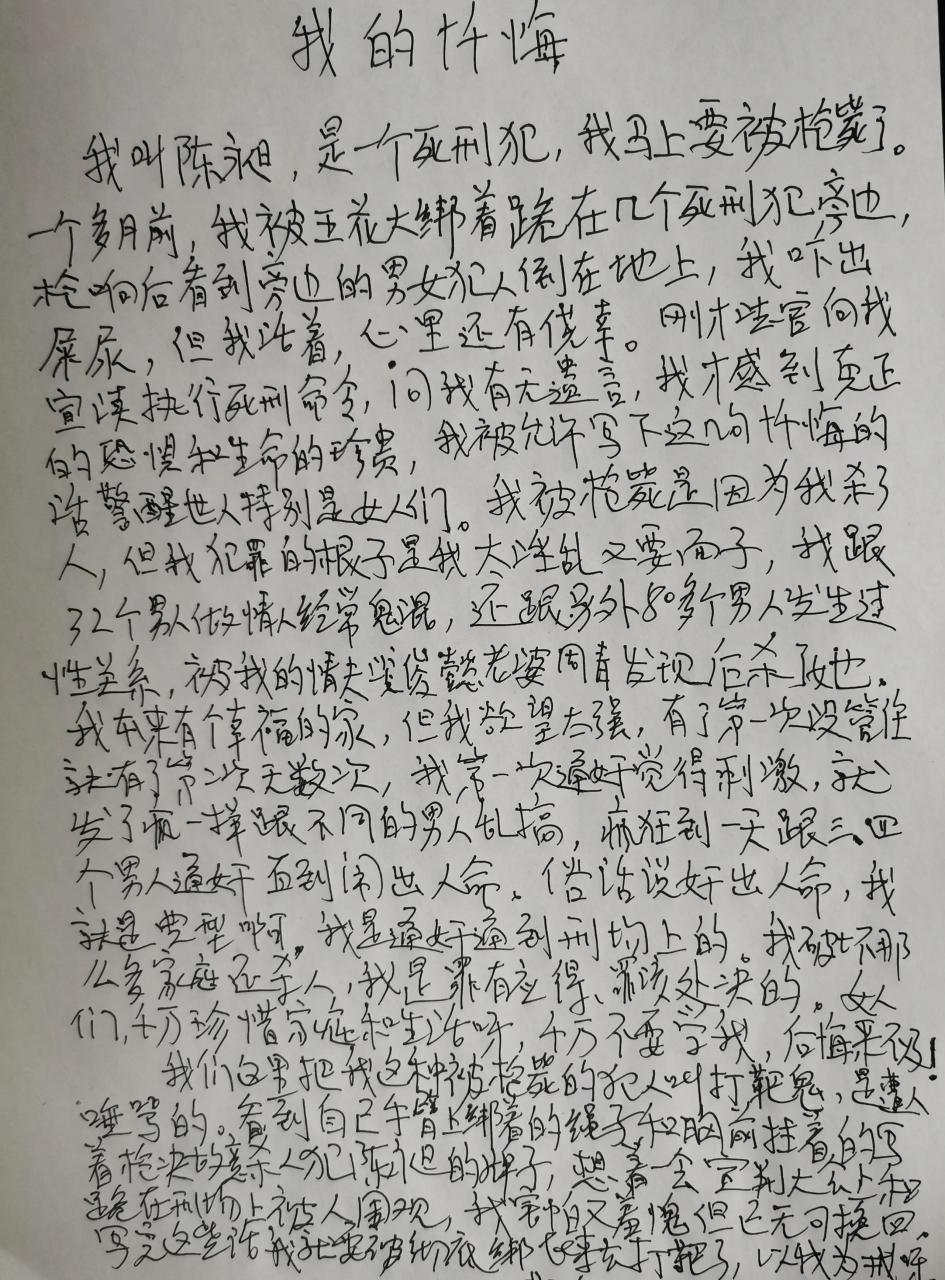 我的忏悔
我叫陈永但，是一个死刑犯，我马上要被枪毙了。
一个多月前，我被五花大绑着跪在几个死刑犯旁边，
枪响后看到旁边的男女犯人倒在地上，我吓出
屎尿，但我活着，心里还有侥幸。刚才法官向我
宣读执行死刑命令，问我有无遗言，我才感到真正
的恐惧和生命的珍贵，我被允许写下这几句忏悔的
话警醒世人特别是女人们。我被枪毙是因为我杀了
人，但我犯罪的根子是我太淫乱又要面子，我跟
32个男人做情人经常鬼混，还跟另外80多个男人发生过
性关系，被我的情夫俊懿老婆周青发现后杀了她。
我本来有个幸福的家，但我欲望太强，有了第一次没管住
就有了第二次无数次，我第一次通奸觉得刺激，就
发了疯一样跟不同的男人乱搞，疯狂到一天跟三、四
个男人通奸直到闹出人命。俗话说奸出人命，我
就是典型啊，我是通奸通到刑场上的。我破坏那
么多家庭还杀人，我是罪有应得、罪该处决的。女人
们，千万珍惜家庭和生活呀，千万不要学我，后悔来不及！
我们这里把我这种被枪毙的犯人叫打靶鬼，是遭人
唾骂的。看到自己手臂上绑着的绳子和胸前挂着的写
着枪决故意杀人犯陈永但的牌子，想着一会宣判大会上和
跪在刑场上被人围观，我害怕又羞愧但已无可挽回。
写完这些话我就要被彻底绑起来去打靶了，以我为戒呀